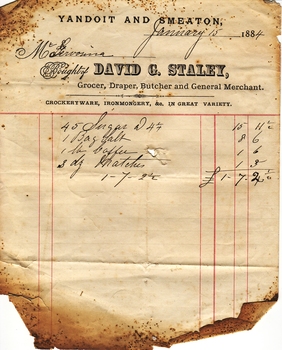 YANDOIT AND SMEATON,
January 15 1884
Mr Gervasoni
Bought of DAVID C. STALEY,
Grocer, Draper, Butcher and General Merchant.
CROCKERYWARE, IRONMONGERY, &c. IN GREAT VARIETY.
45 Sugar D 4¼ 15 11¼
1 Bag Salt 8 6
1 lb Coffee 1 6
3 dz Matches 1 3
1-7-2½ £ 1-7-2½